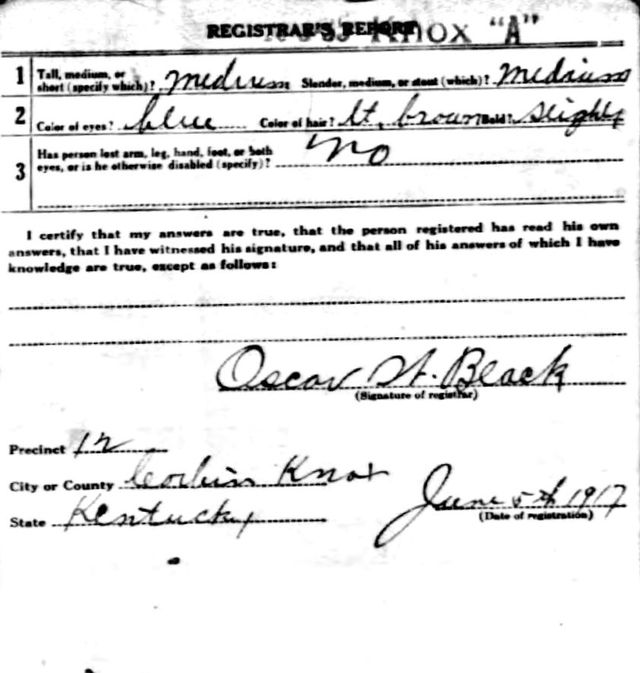 REGISTRAR'S REPORT KNOX "A"
1 Tall, medium, or short (specify which)? medium Slender, medium, or stout (which)? medium
2 Color of eyes? blue Color of hair? lt. brown Bald? slightly
3 Has person lost arm, leg, hand, foot, or both
eyes, or is he otherwise disabled (specify)? No
I certify that my answers are true, that the person registered has read his own
answers, that I have witnessed his signature, and that all of his answers of which I have
knowledge are true, except as follows:
Oscar H. Black
(Signature of registrar)
Precinct 12
City or County Corbin Knox
State Kentucky
June 5th 1917
(Date of registration)